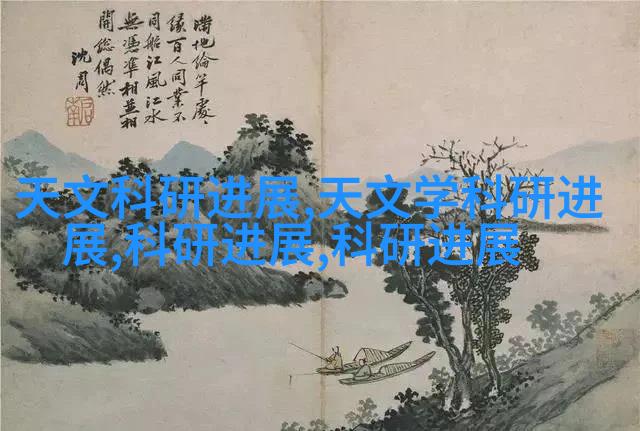 滿地綸竿處、
緣百人同業不
同船江風江水
無憑準相並相
開總偶然
沈周
天文科研进展,天文学科研进
展,科研进展,科研进展